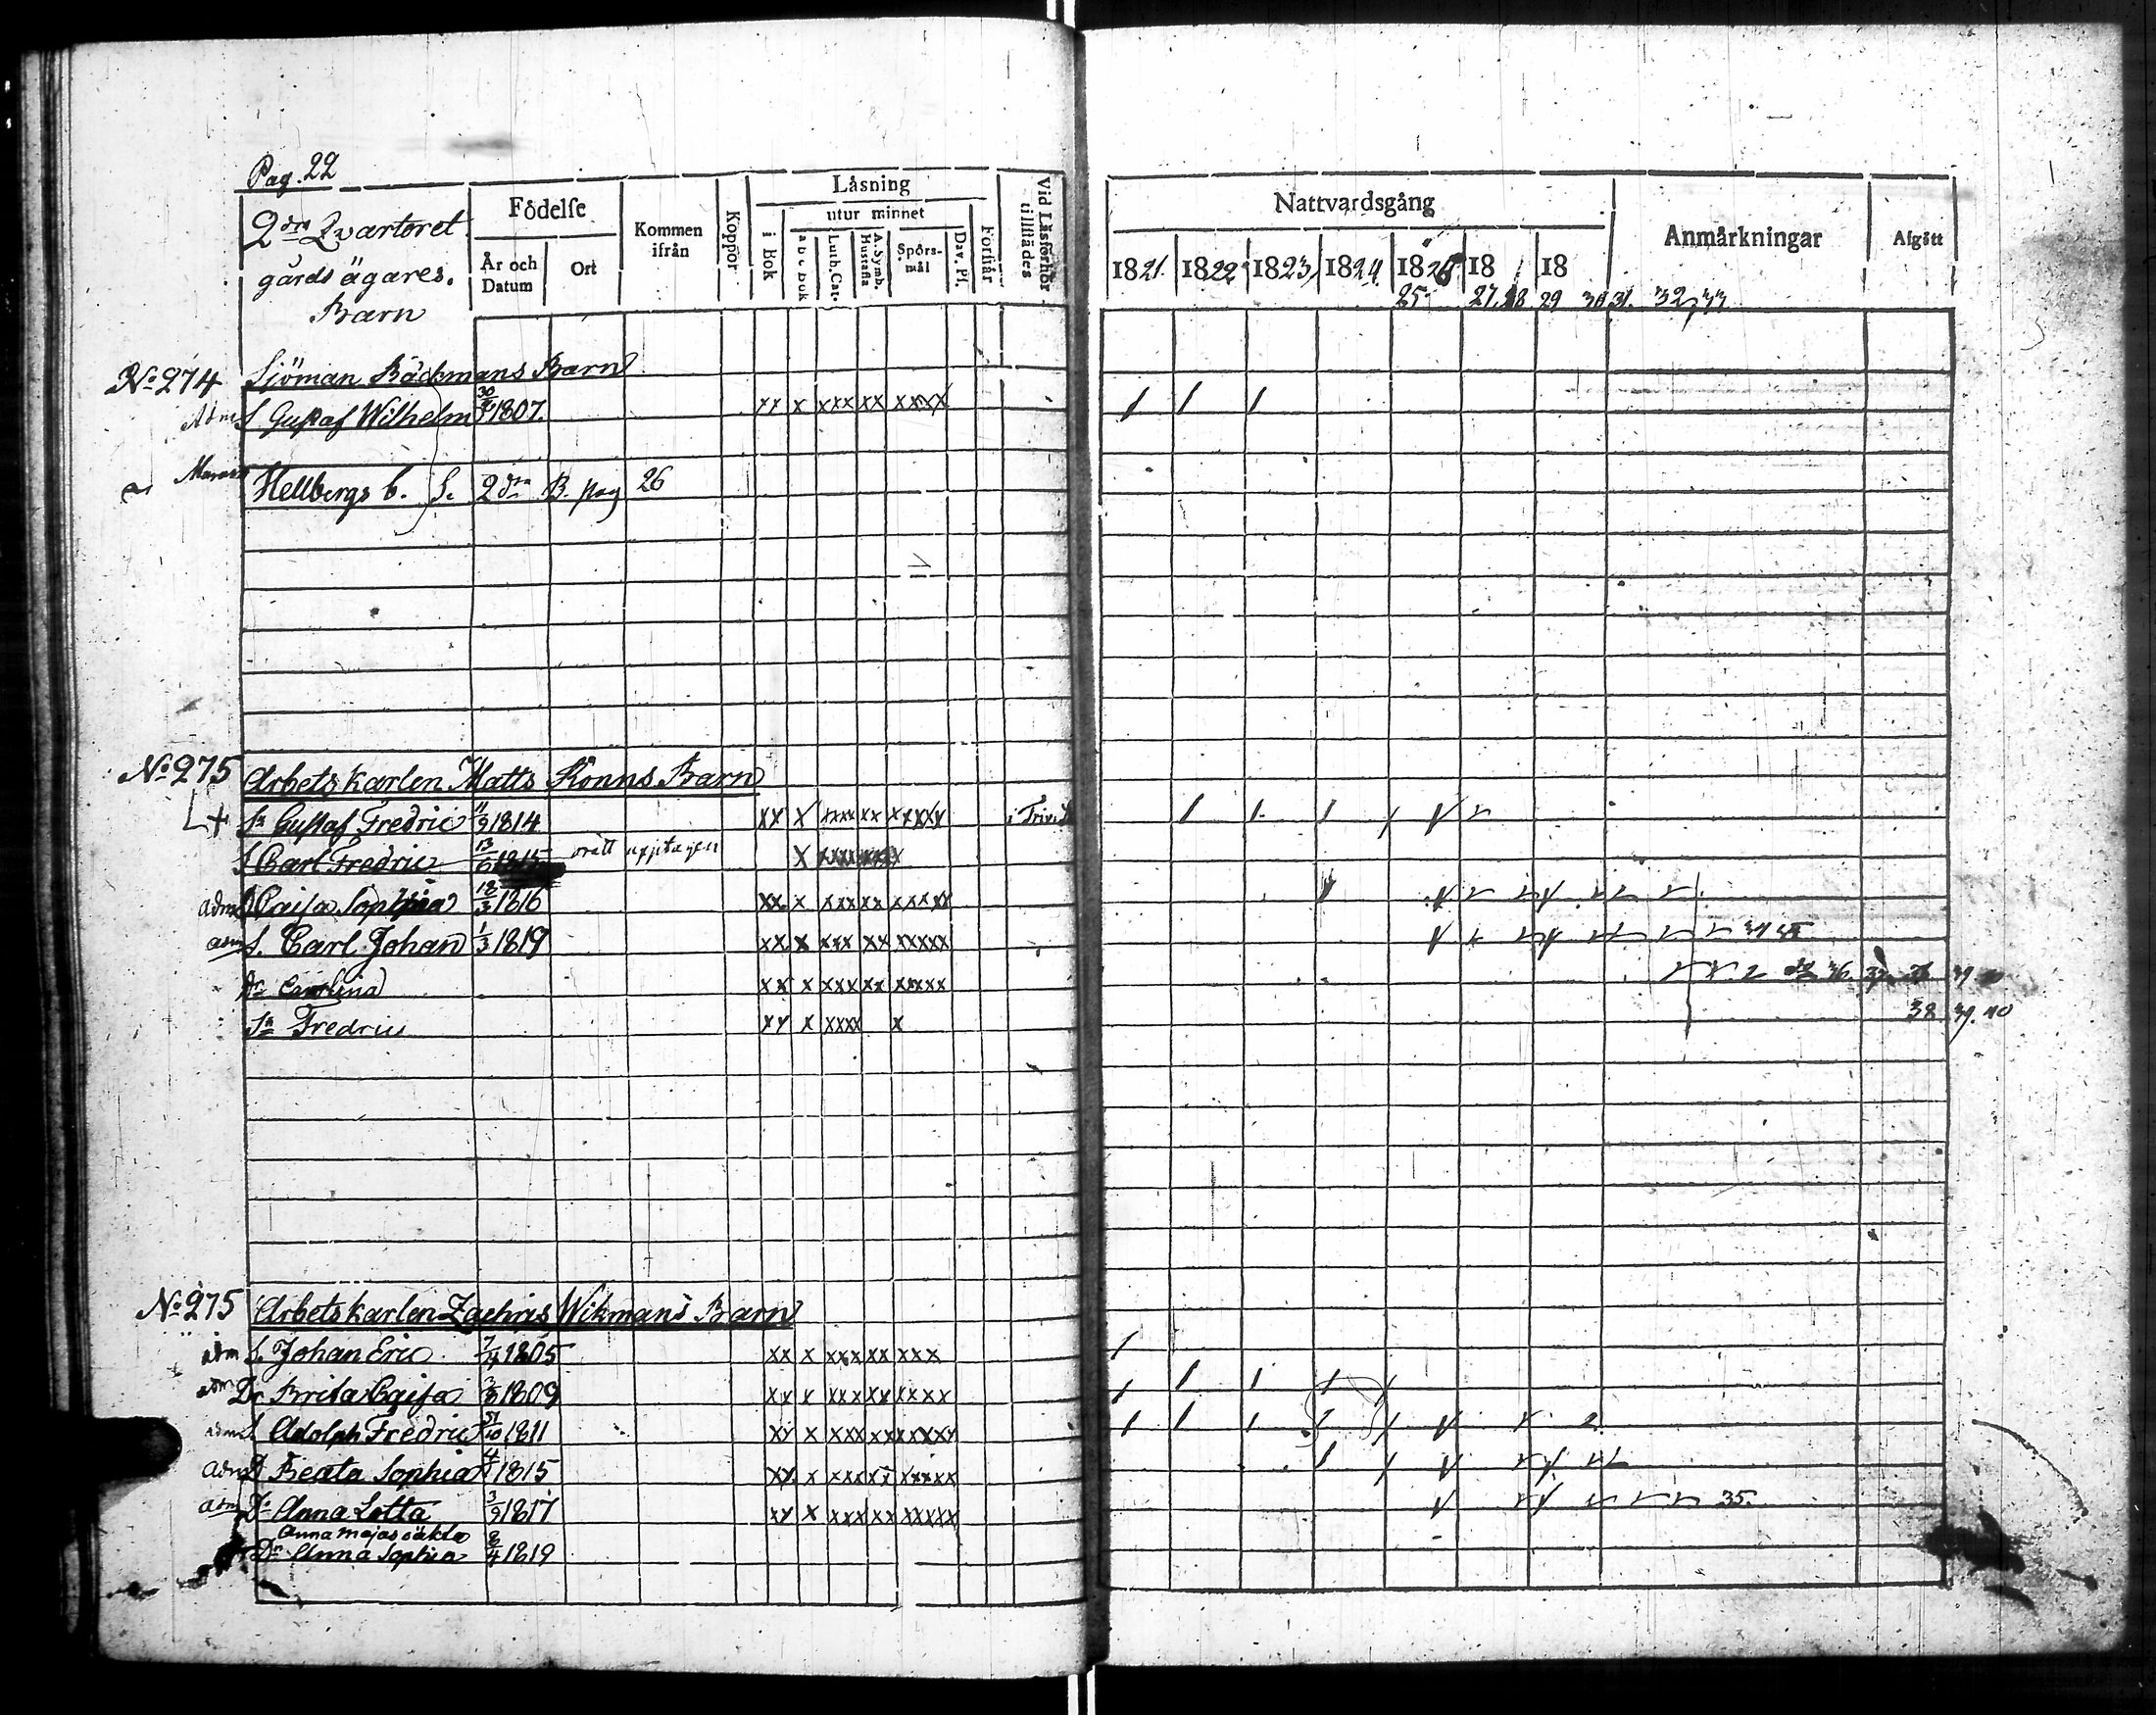 Pag. 22
2dra Qvarteret
gårds ägares.
Barn
Födelse
År och Datum
Ort
Kommen ifrån
Koppor
Låsning
i Bok
utur minnet
a b c bok
Luth. Cat.
A. Symb. Hustafla
Spörs-mål
Dav. Ps.
Förstår
Vid Låsförhör tillstädes
Nattvardsgång
1821. 1822 1823 1824 1826 18 18
25 27, 28 29 30 31. 32, 33
Anmärkningar
Afgått
No 274 Sjöman Bäckmans Barn
Adm S Gustaf Wilhelm 30 1807. xx x xxx xx xxxxx
Hellbergs b. S. 2dra B. pag 26
No 275 Arbetskarlen Matts Ronns Barn
Sn Gustaf Fredric 11/9 1814 xx x xxxx xx xxxxx i Triv. S
S Carl Fredric 13/6 1815 orätt upptagen x xxxx xxx x
adm D Caisa Sophia 12/3 1816 xx x xxx xx xxxxx
adm S. Carl Johan 1/3 1819 xx x xxx xx xxxxx 34 35
Dr Carolina xx x xxx xx xxxxx 36. 37. 38 39
Sn Fredric xx x xxxx x 38 39. 40
No 275 Arbetskarlen Zachris Wikmans Barn
adm S. Johan Eric 7/4 1805 xx x xxx xx xxx
adm Dr Brita Caisa 1809 xx x xxx xx xxxx
adm S Adolph Fredric 31/10 1811 xx x xxx xx xxxxx
adm D Beata Sophia 1815 xx x xxx xx xxxxx
adm Dr Anna Lotta 3/9 1817 xx x xxx xx xxxxx 35.
Anna Majas oäkta
Dr Anna Sophia 8/4 1819